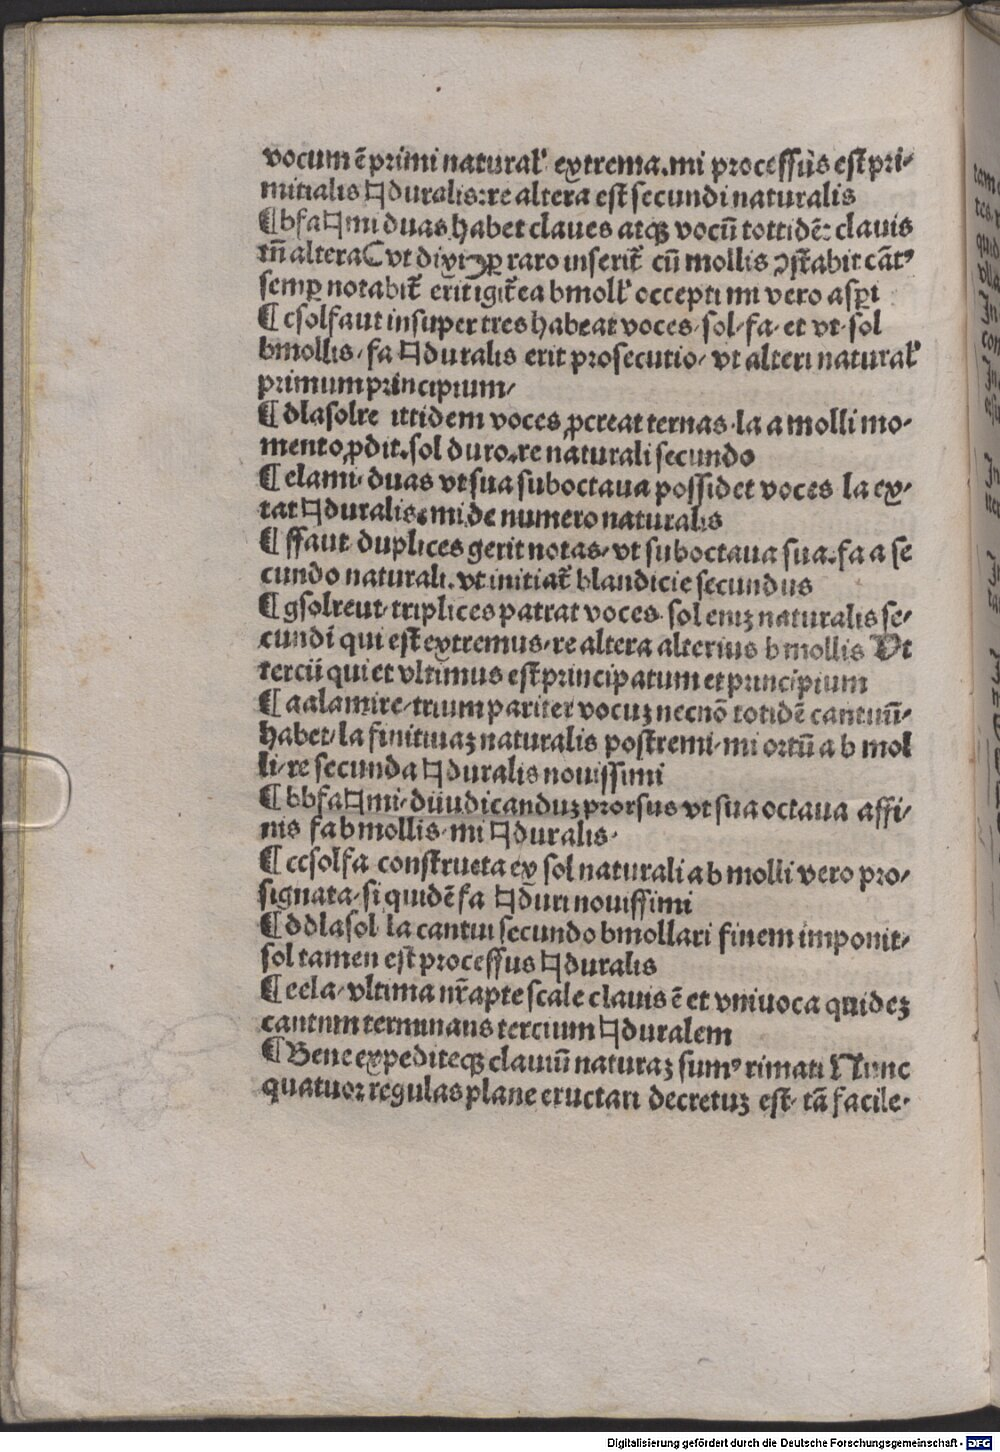 vocum ē primi natural' extrema. mi processus est pri-
mitialis ♮duralis: re altera est secundi naturalis
¶ bfa♮mi duas habet claues atqꝫ vocū tottidē: clauis
tñ altera (vt dixi) ꝓpter raro inserit̃ cū mollis ↄstabit cãtꝰ
semꝑ notabit̃ erit igit̃ ea bmoll' occepti mi vero asꝑi
¶ csolfaut insuper tres habeat voces. sol/ fa/ et vt/ sol
bmollis/ fa ♮duralis erit prosecutio/ vt alteri natural'
primum principium/
¶ dlasolre ittidem voces ꝓcreat ternas. la a molli mo-
mento ꝓdit. sol duro. re naturali secundo
¶ elami/ duas vt sua suboctaua possidet voces la ex-
tat ♮duralis. mi de numero naturalis
¶ ffaut duplices gerit notas/ vt suboctaua sua. fa a se
cundo naturali. vt initiat̃ blandicie secundus
¶ gsolreut/ triplices patrat voces. sol eniꝫ naturalis se-
cundi qui est extremus/ re altera alterius b mollis Vt
tercii qui et vltimus est principatum et principium
¶ aalamire/ trium pariter vocuꝫ necnō totidē cantuū-
habet/ la finitiuaꝫ naturalis postremi/ mi ortū a b mol
li/ re secunda ♮duralis nouissimi
¶ bbfa♮mi/ diiudicanduꝫ prorsus vt sua octaua affi-
nis fa bmollis. mi ♮duralis.
¶ ccsolfa constructa ex sol naturali a b molli vero pro-
signata/ si quidē fa ♮duri nouissimi
¶ ddlasol la cantui secundo bmollari finem imponit/
sol tamen est processus ♮duralis
¶ eela/ vltima nr̃apte scale clauis ē et vniuoca quideꝫ
cantum terminans tercium ♮duralem
¶ Bene expediteqꝫ clauiū naturaꝫ sumꝰ rimati Nunc
quatuor regulas plane eructari decretuꝫ est/ tā facile.
tam
In
con
In
In
Digitalisierung gefördert durch die Deutsche Forschungsgemeinschaft - DFG